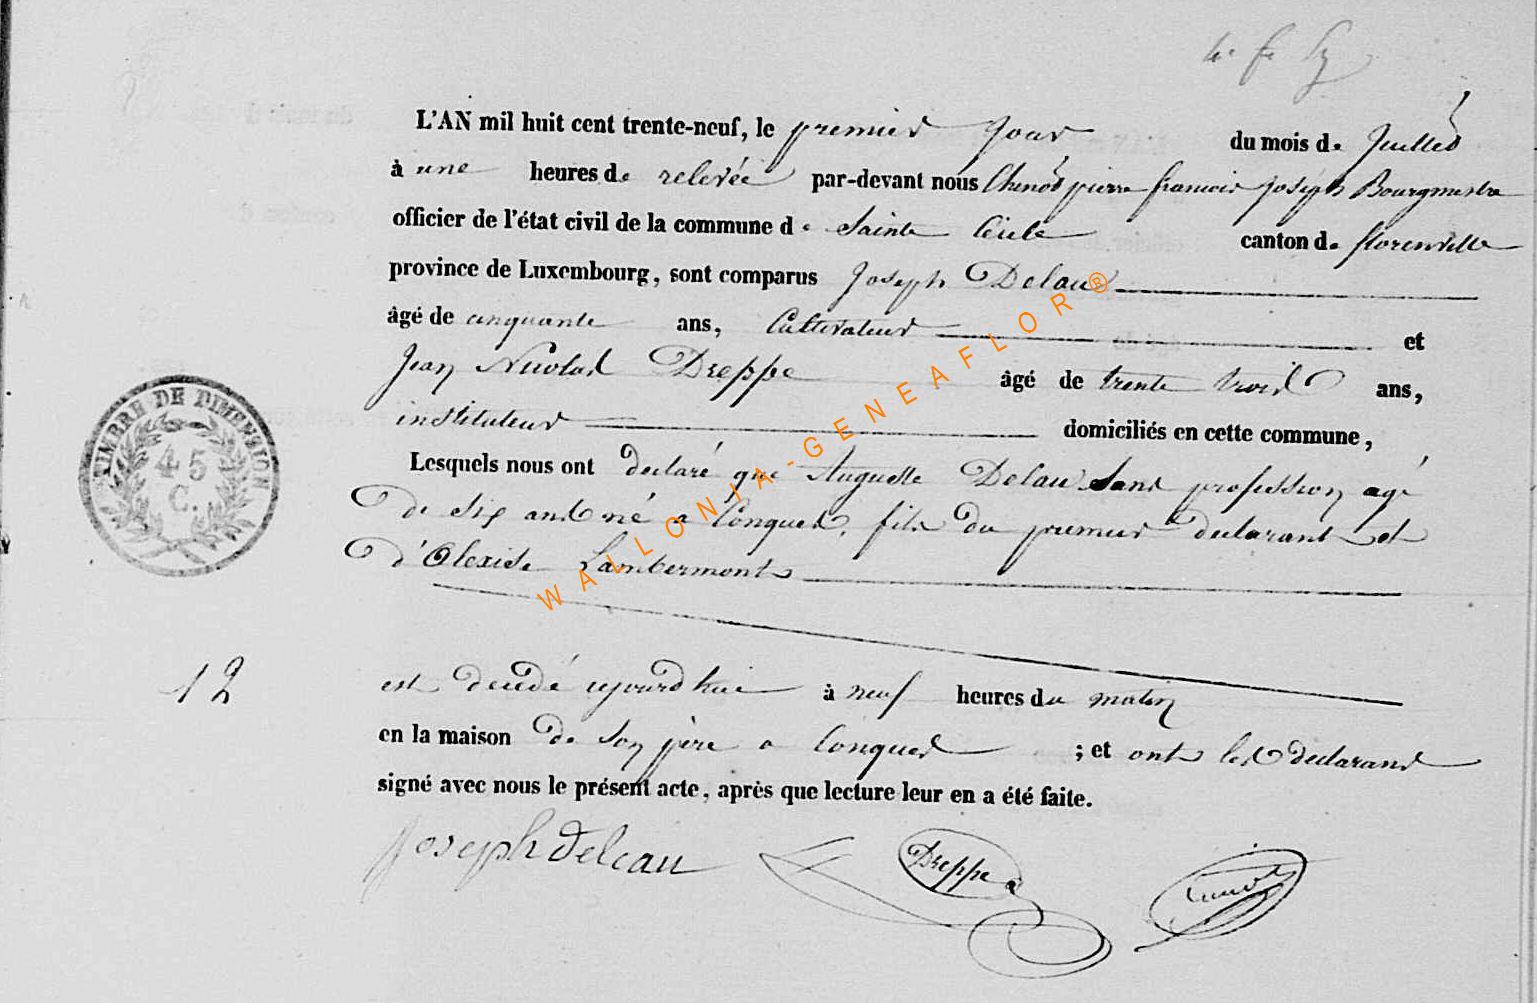 L'AN mil huit cent trente-neuf, le premier Jour du mois de Juillet
à une heures de relevée par-devant nous Chenot pierre francois joseph Bourgmestre
officier de l'état civil de la commune de Sainte Cécile canton de florenville
province de Luxembourg, sont comparus Joseph Delau
âgé de cinquante ans, Cultivateur et
Jean Nicolas Dreppe âgé de trente trois ans,
instituteur domiciliés en cette commune,
Lesquels nous ont declaré que Auguste Delau Sans profession agé
de six ans né a Conques, fils du premier declarant et
d'Olexise Lambermont
12
est decedé ajourdhui à neuf heures du matin
en la maison de Son père a Conques ; et ont les declarans
signé avec nous le présent acte, après que lecture leur en a été faite.
Joseph deleau Dreppe Chenot
TIMBRE DE DIMENSION
45
C.
WALLONIA-GENEAFLOR®